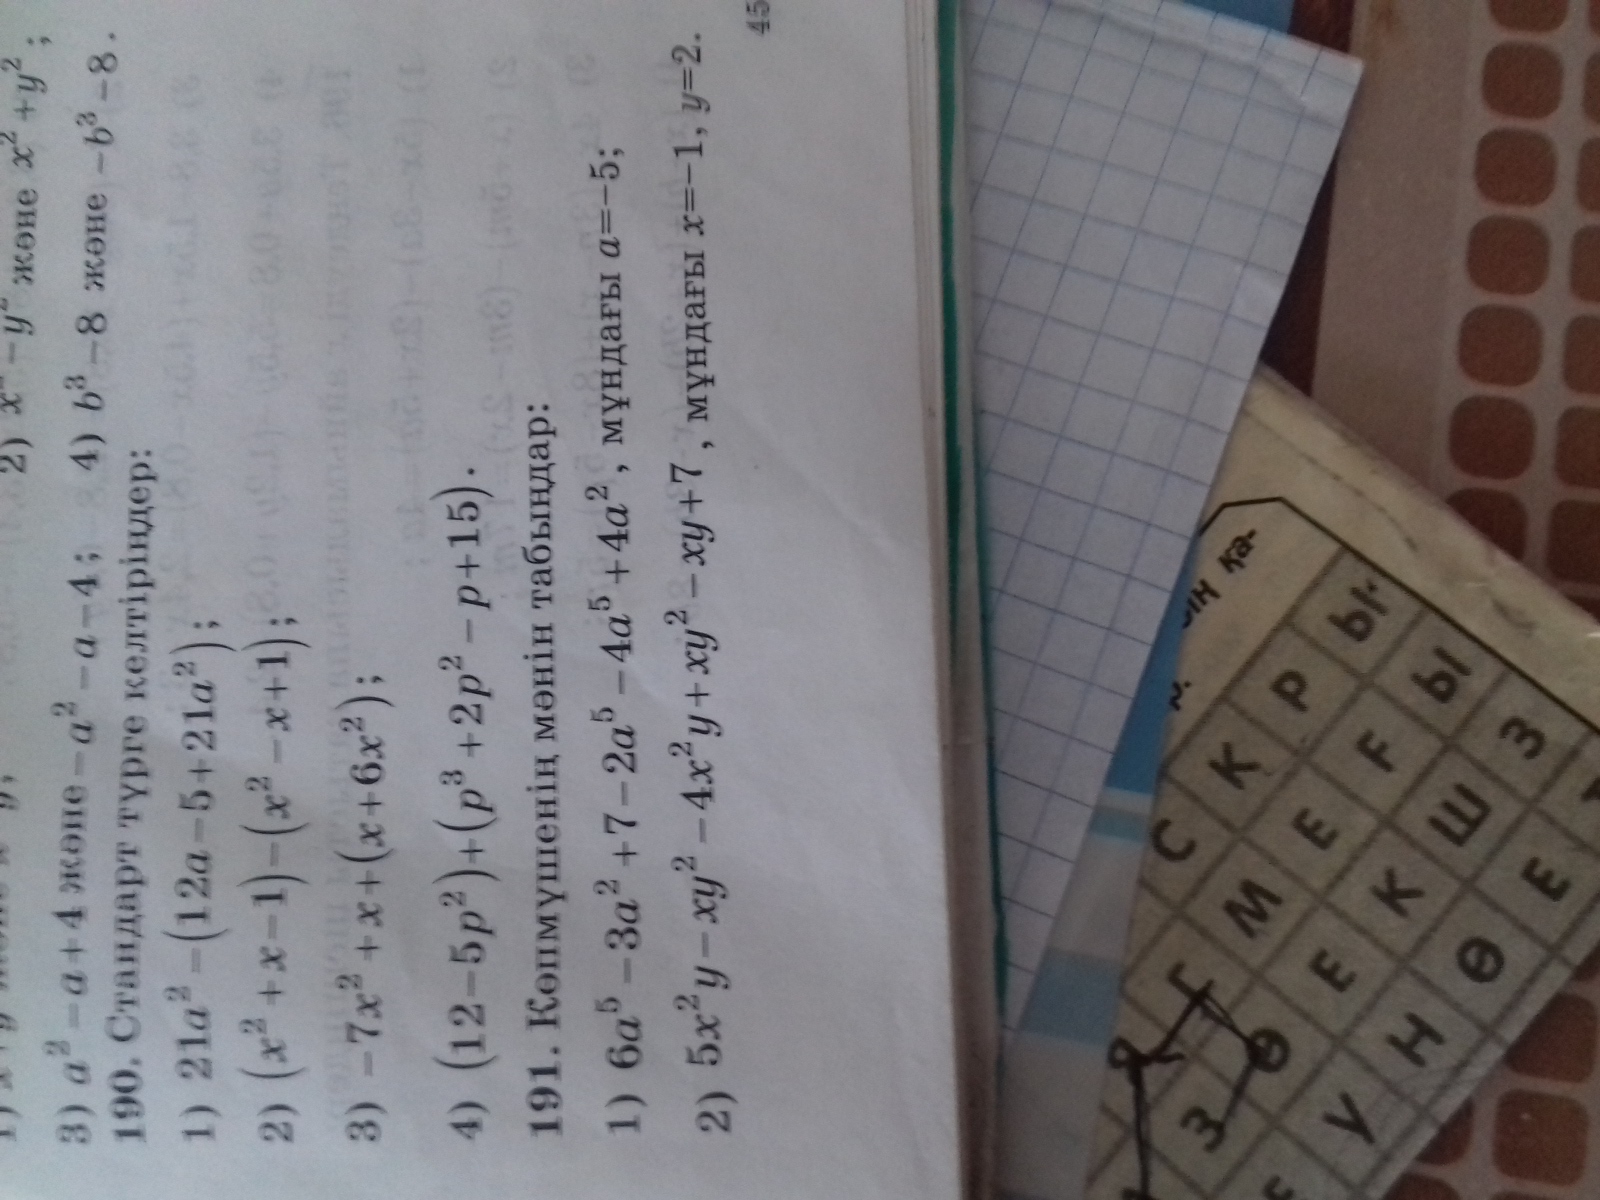 2) x² − y² және x² + y²;
3) a² − a + 4 және −a² − a − 4; 4) b³ − 8 және −b³ − 8.
190. Стандарт түрге келтіріңдер:
1) 21a² − (12a − 5 + 21a²);
2) (x² + x − 1) − (x² − x + 1);
3) −7x² + x + (x + 6x²);
4) (12 − 5p²) + (p³ + 2p² − p + 15).
191. Көпмүшенің мәнін табыңдар:
1) 6a⁵ − 3a² + 7 − 2a⁵ − 4a⁵ + 4a², мұндағы a=−5;
2) 5x²y − xy² − 4x²y + xy² − xy + 7, мұндағы x=−1, y=2.
45
қа-
С К Р Ы
Г М Е Ғ Ы
З Ө Е К Ш З
У Н Ө Е